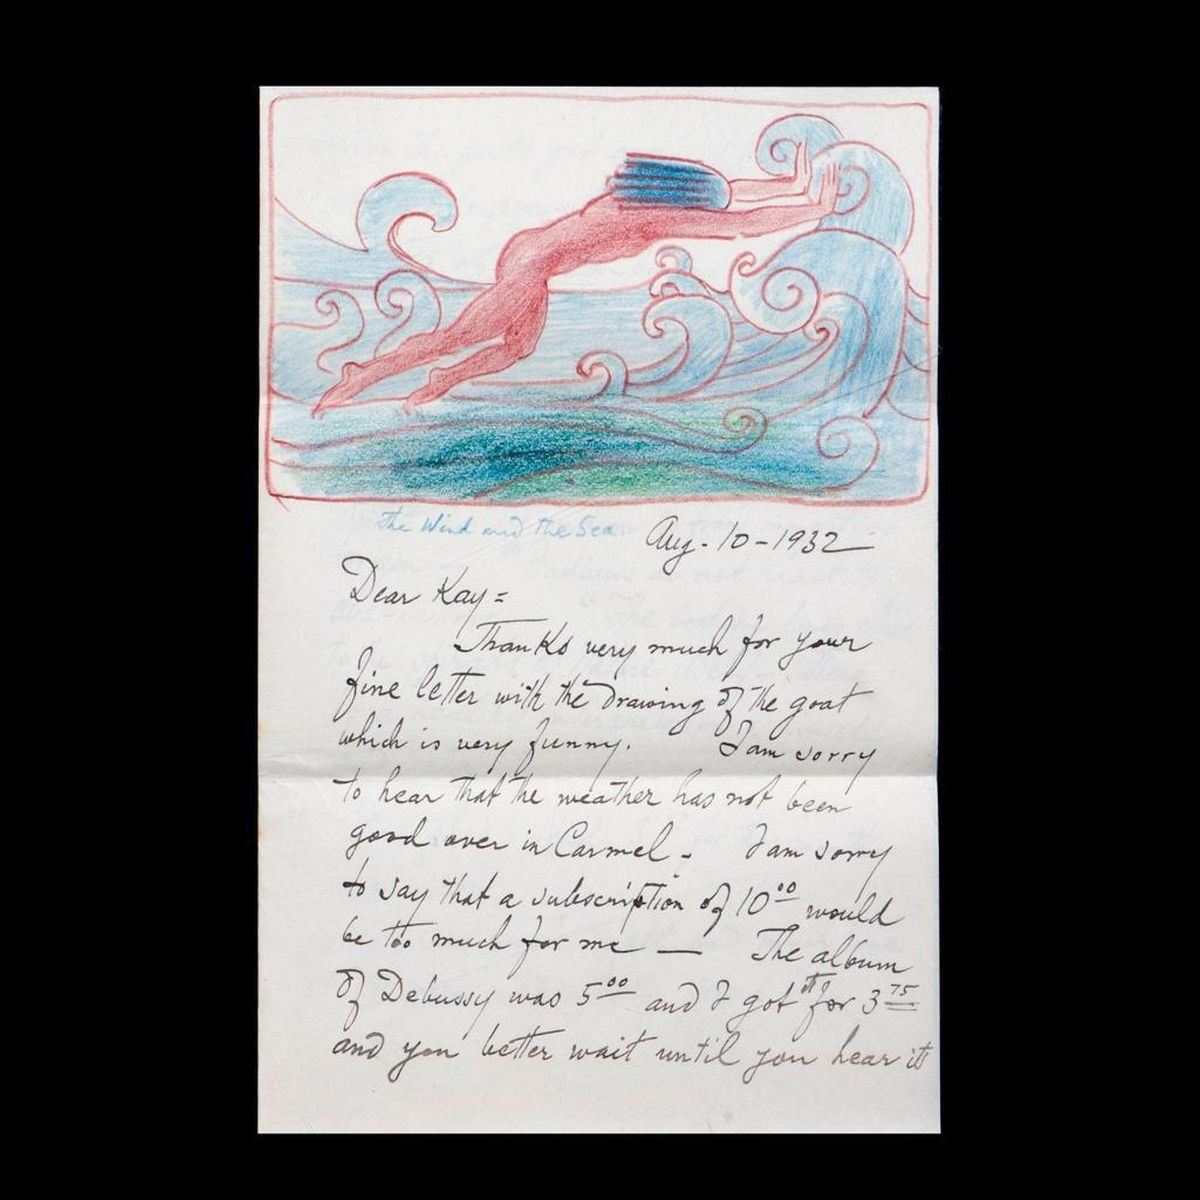 the Wind and the Sea.
Aug. 10 - 1932
Dear Kay =
Thanks very much for your
fine letter with the drawing of the goat
which is very funny. I am sorry
to hear that the weather has not been
good over in Carmel - I am sorry
to say that a subscription of 10 00 would
be too much for me — The album
of Debussy was 5 00 and I got it for 3 75
and you better wait until you hear it